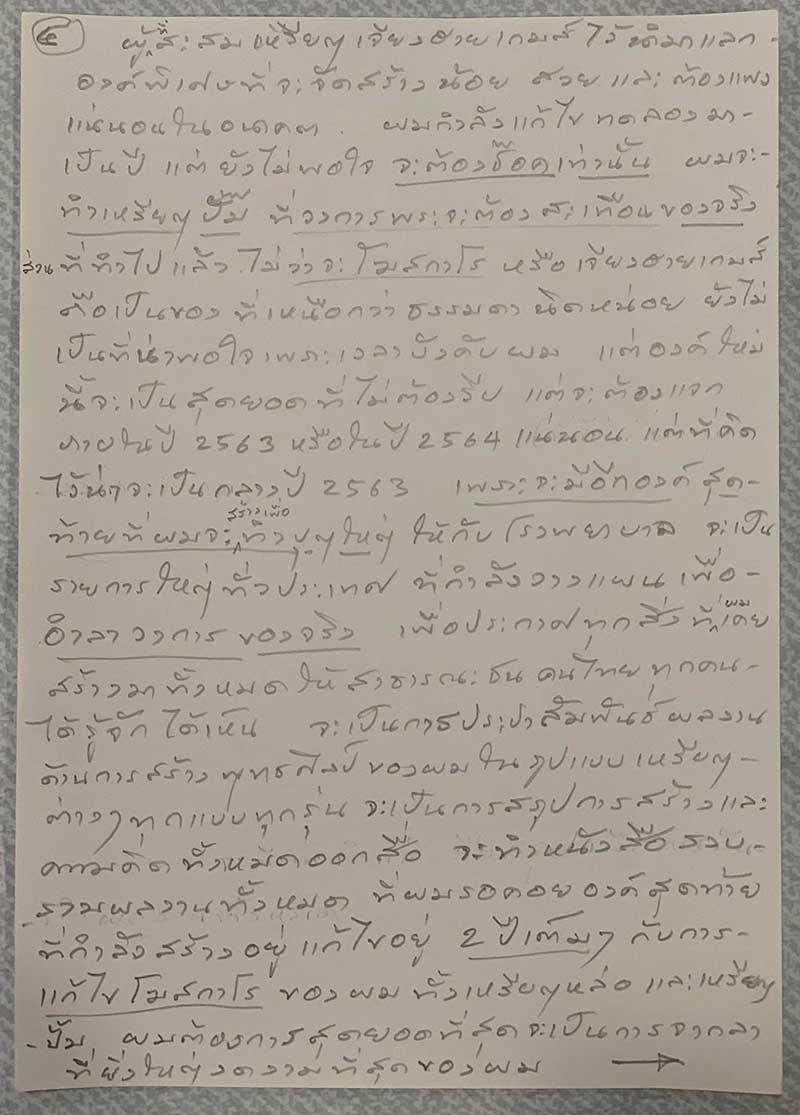 ๔
ผู้ที่สะสมเหรียญเจียงฮายเกมส์ ไว้นำมาแลก-
องค์พิเศษที่จะจัดสร้างน้อย สวยและต้องแพง
แน่นอนในอนาคต. ผมกำลังแก้ไข ทดลองมา-
เป็นปี แต่ยังไม่พอใจ จะต้องช๊อคเท่านั้น ผมจะ-
ทำเหรียญปั๊ม ที่วงการพระจะต้องสะเทือนของจริง
ส่วนที่ทำไปแล้ว ไม่ว่าจะโมสกาโร หรือเจียงฮายเกมส์
คือเป็นของที่เหนือกว่าธรรมดานิดหน่อย ยังไม่
เป็นที่น่าพอใจเพราะเวลาบังคับผม แต่องค์ใหม่
นี้จะเป็นสุดยอดที่ไม่ต้องรีบ แต่จะต้องแจก
ภายในปี 2563 หรือในปี 2564 แน่นอน. แต่ที่คิด
ไว้น่าจะเป็นกลางปี 2563 เพราะจะมีอีกองค์สุด-
ท้ายที่ผมจะสร้างเพื่อทำบุญใหญ่ ให้กับโรงพยาบาล จะเป็น
รายการใหญ่ทั่วประเทศ ที่กำลังวางแผนเพื่อ-
อำลาวงการของจริง เพื่อประกาศทุกสิ่งที่ผมเคย
สร้างมาทั้งหมดให้สาธารณะชน คนไทยทุกคน-
ได้รู้จัก ได้เห็น จะเป็นการประชาสัมพันธ์ผลงาน
ด้านการสร้างพุทธศิลป์ของผมในรูปแบบเหรียญ-
ต่างๆทุกแบบทุกรุ่น จะเป็นการสรุปการสร้างและ
ความคิดทั้งหมดออกสื่อ จะทำหนังสือรวบ-
รวมผลงานทั้งหมด ที่ผมรอคอยองค์สุดท้าย
ที่กำลังสร้างอยู่ แก้ไขอยู่ 2 ปีเต็มๆ กับการ-
แก้ไขโมสกาโร ของผมทั้งเหรียญหล่อและเหรียญ
-ปั๊ม ผมต้องการสุดยอดที่สุดจะเป็นการจากลา
ที่ยิ่งใหญ่งดงามที่สุดของผม →